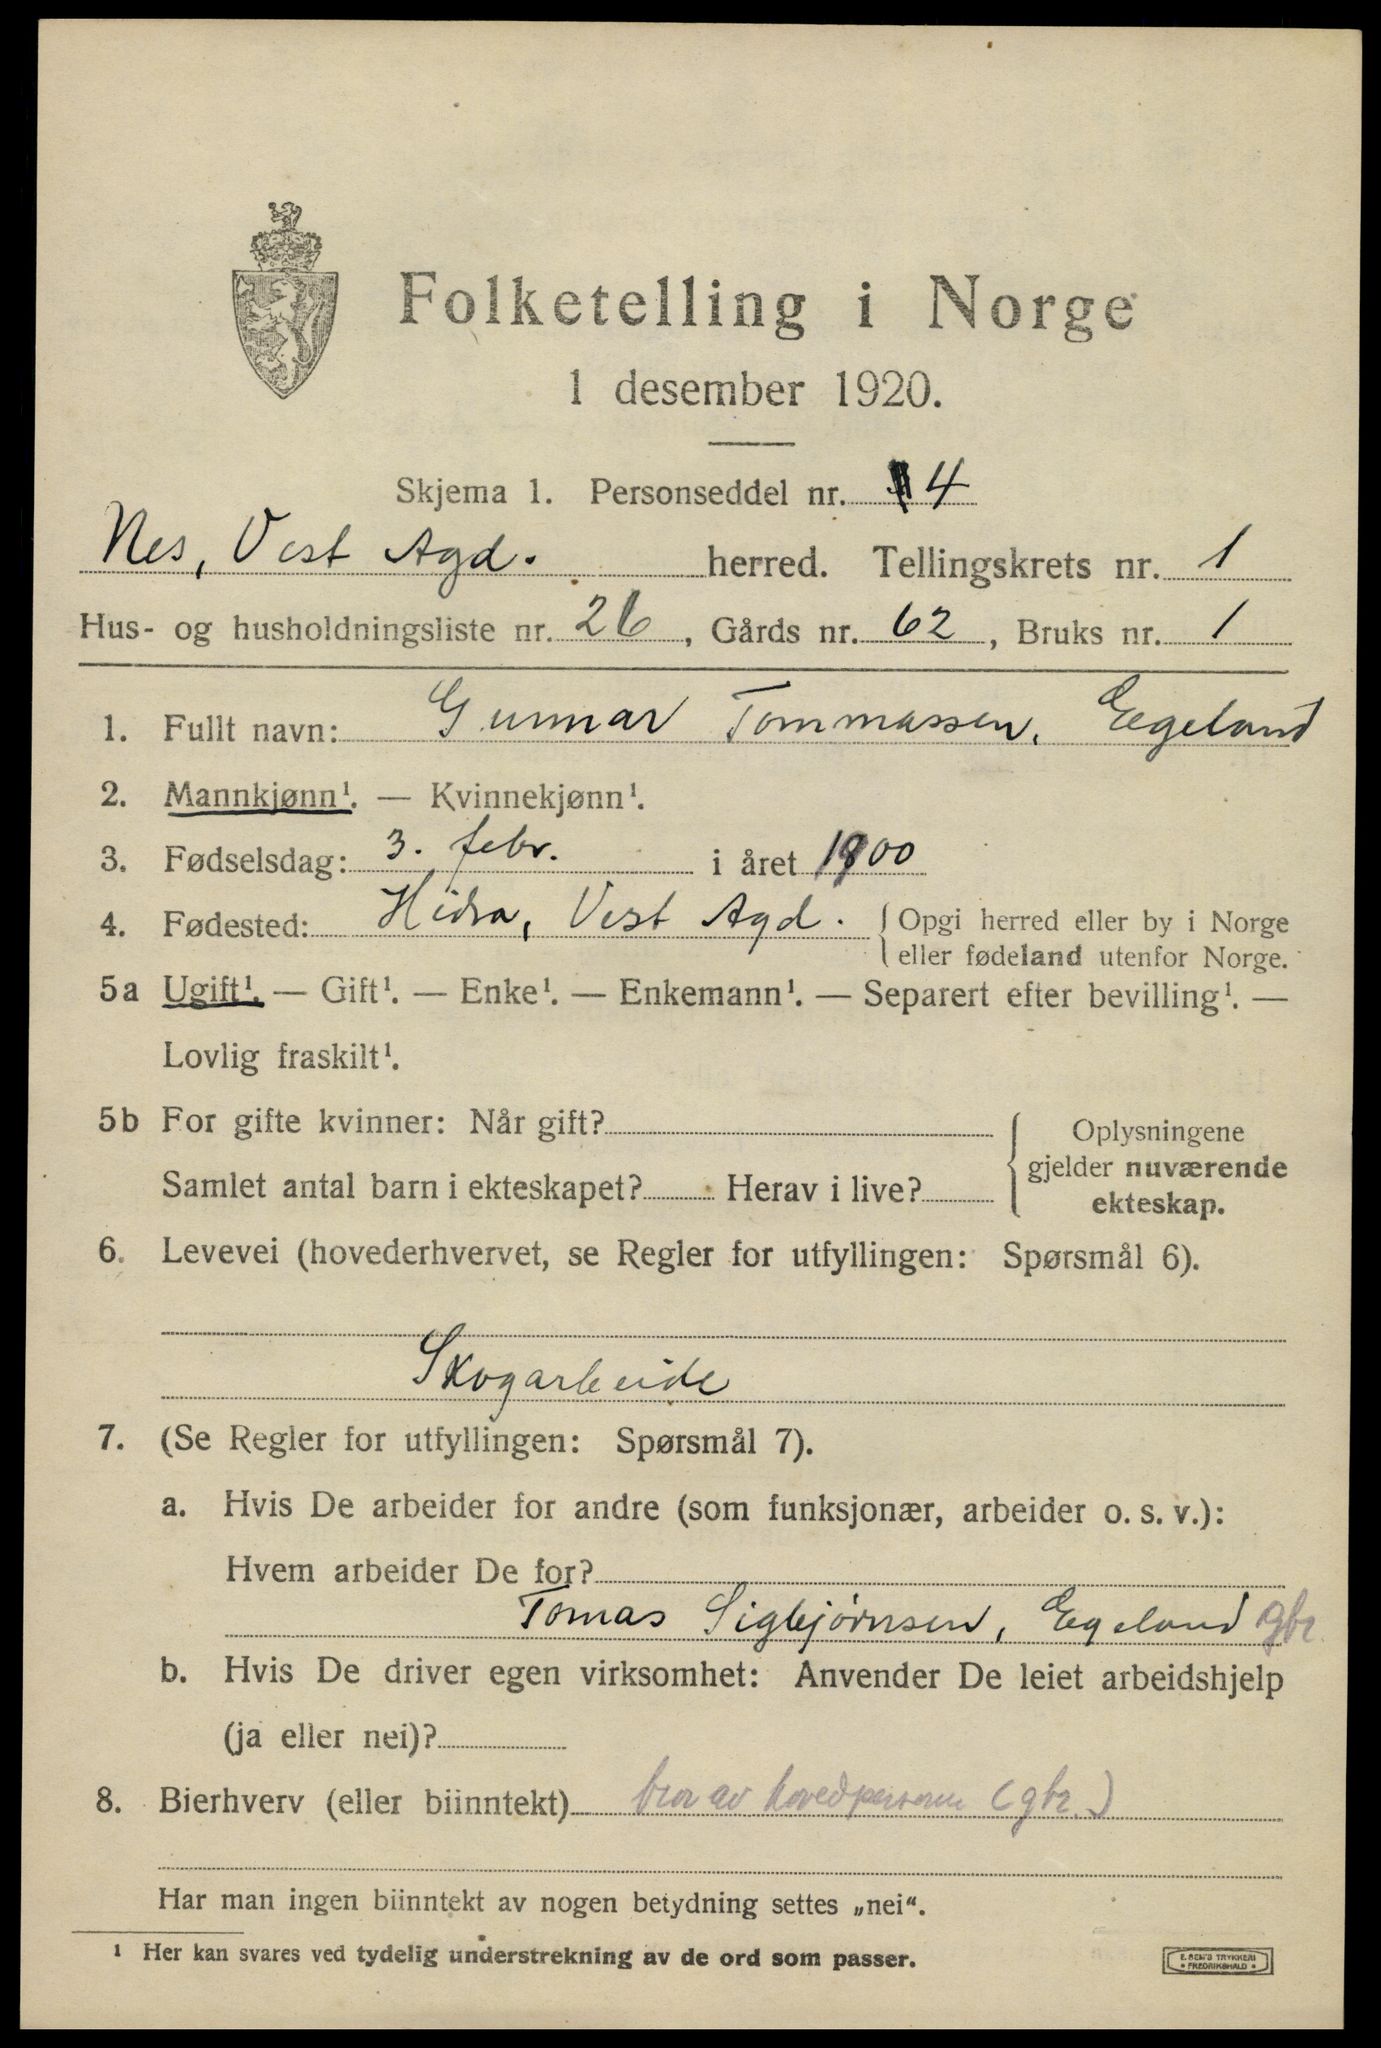 Folketelling i Norge
1 desember 1920.
Skjema 1. Personseddel nr. 4
Nes, Vest Agd. herred. Tellingskrets nr. 1
Hus- og husholdningsliste nr. 26, Gårds nr. 62, Bruks nr. 1
1. Fullt navn: Gunnar Tommassen, Egeland
2. Mannkjønn¹. — Kvinnekjønn¹.
3. Fødselsdag: 3. febr. i året 1900
4. Fødested: Hidra, Vest Agd. { Opgi herred eller by i Norge
eller fødeland utenfor Norge.
5a Ugift¹. — Gift¹. — Enke¹. — Enkemann¹. — Separert efter bevilling¹. —
Lovlig fraskilt¹.
5b For gifte kvinner: Når gift?
Samlet antal barn i ekteskapet? Herav i live?
Oplysningene
gjelder nuværende
ekteskap.
6. Levevei (hovederhvervet, se Regler for utfyllingen: Spørsmål 6).
Skogarbeide
7. (Se Regler for utfyllingen: Spørsmål 7).
a. Hvis De arbeider for andre (som funksjonær, arbeider o. s. v.):
Hvem arbeider De for?
Tomas Sigbjørnsen, Egeland gbr.
b. Hvis De driver egen virksomhet: Anvender De leiet arbeidshjelp
(ja eller nei)?
8. Bierhverv (eller biinntekt) bror av hovedpersonen (gbr.)
Har man ingen biinntekt av nogen betydning settes „nei“.
¹ Her kan svares ved tydelig understrekning av de ord som passer.
E. SEM'S TRYKKERI
• FREDRIKSHALD •